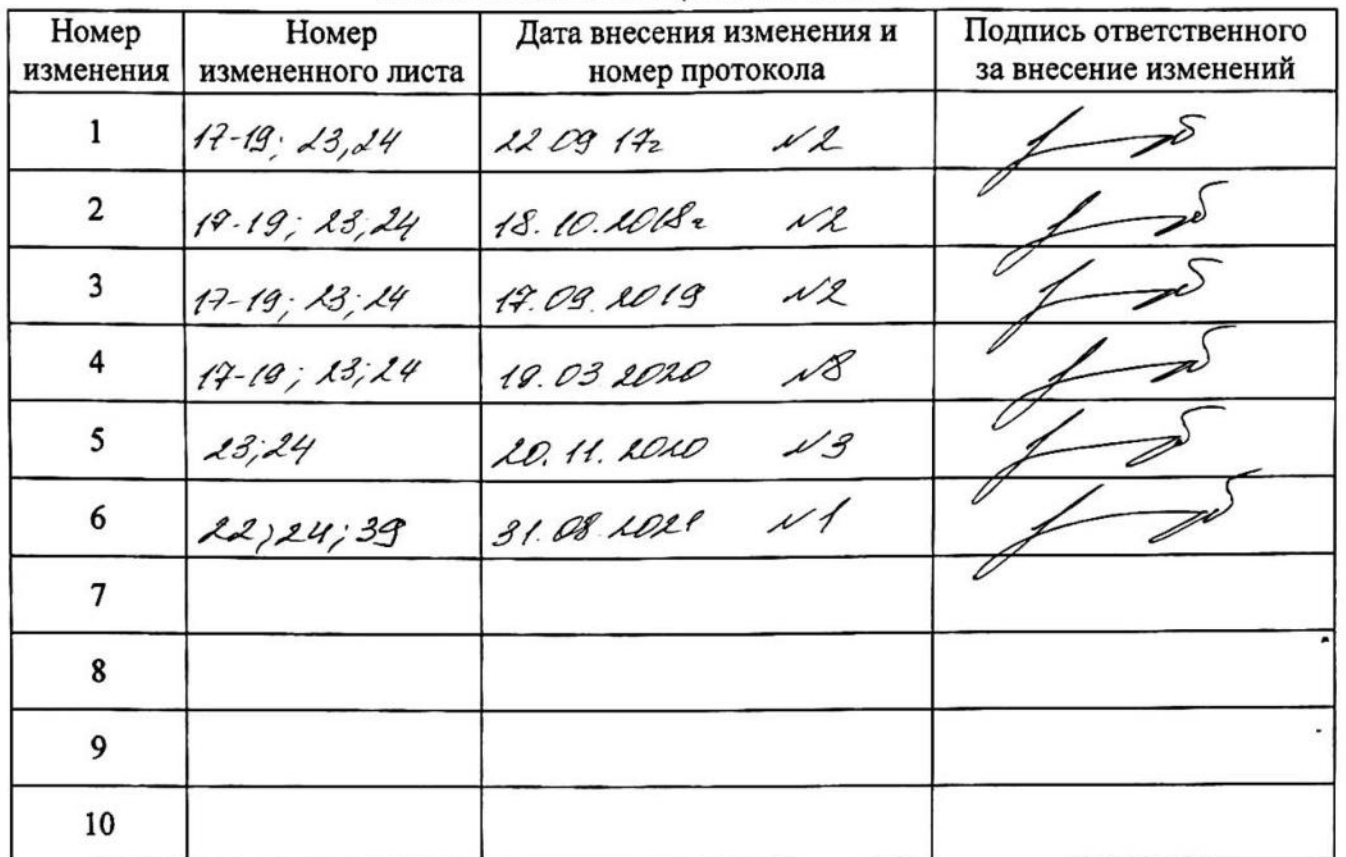 Номер изменения Номер измененного листа Дата внесения изменения и номер протокола Подпись ответственного за внесение изменений
1 17-19; 23,24 22 09 17г N2
2 17-19; 23,24 18.10.2018г N2
3 17-19; 23; 24 17.09.2019 N2
4 17-19; 23; 24 19.03 2020 N8
5 23;24 20.11.2020 N3
6 22;24;39 31.08.2021 N1
7
8
9
10